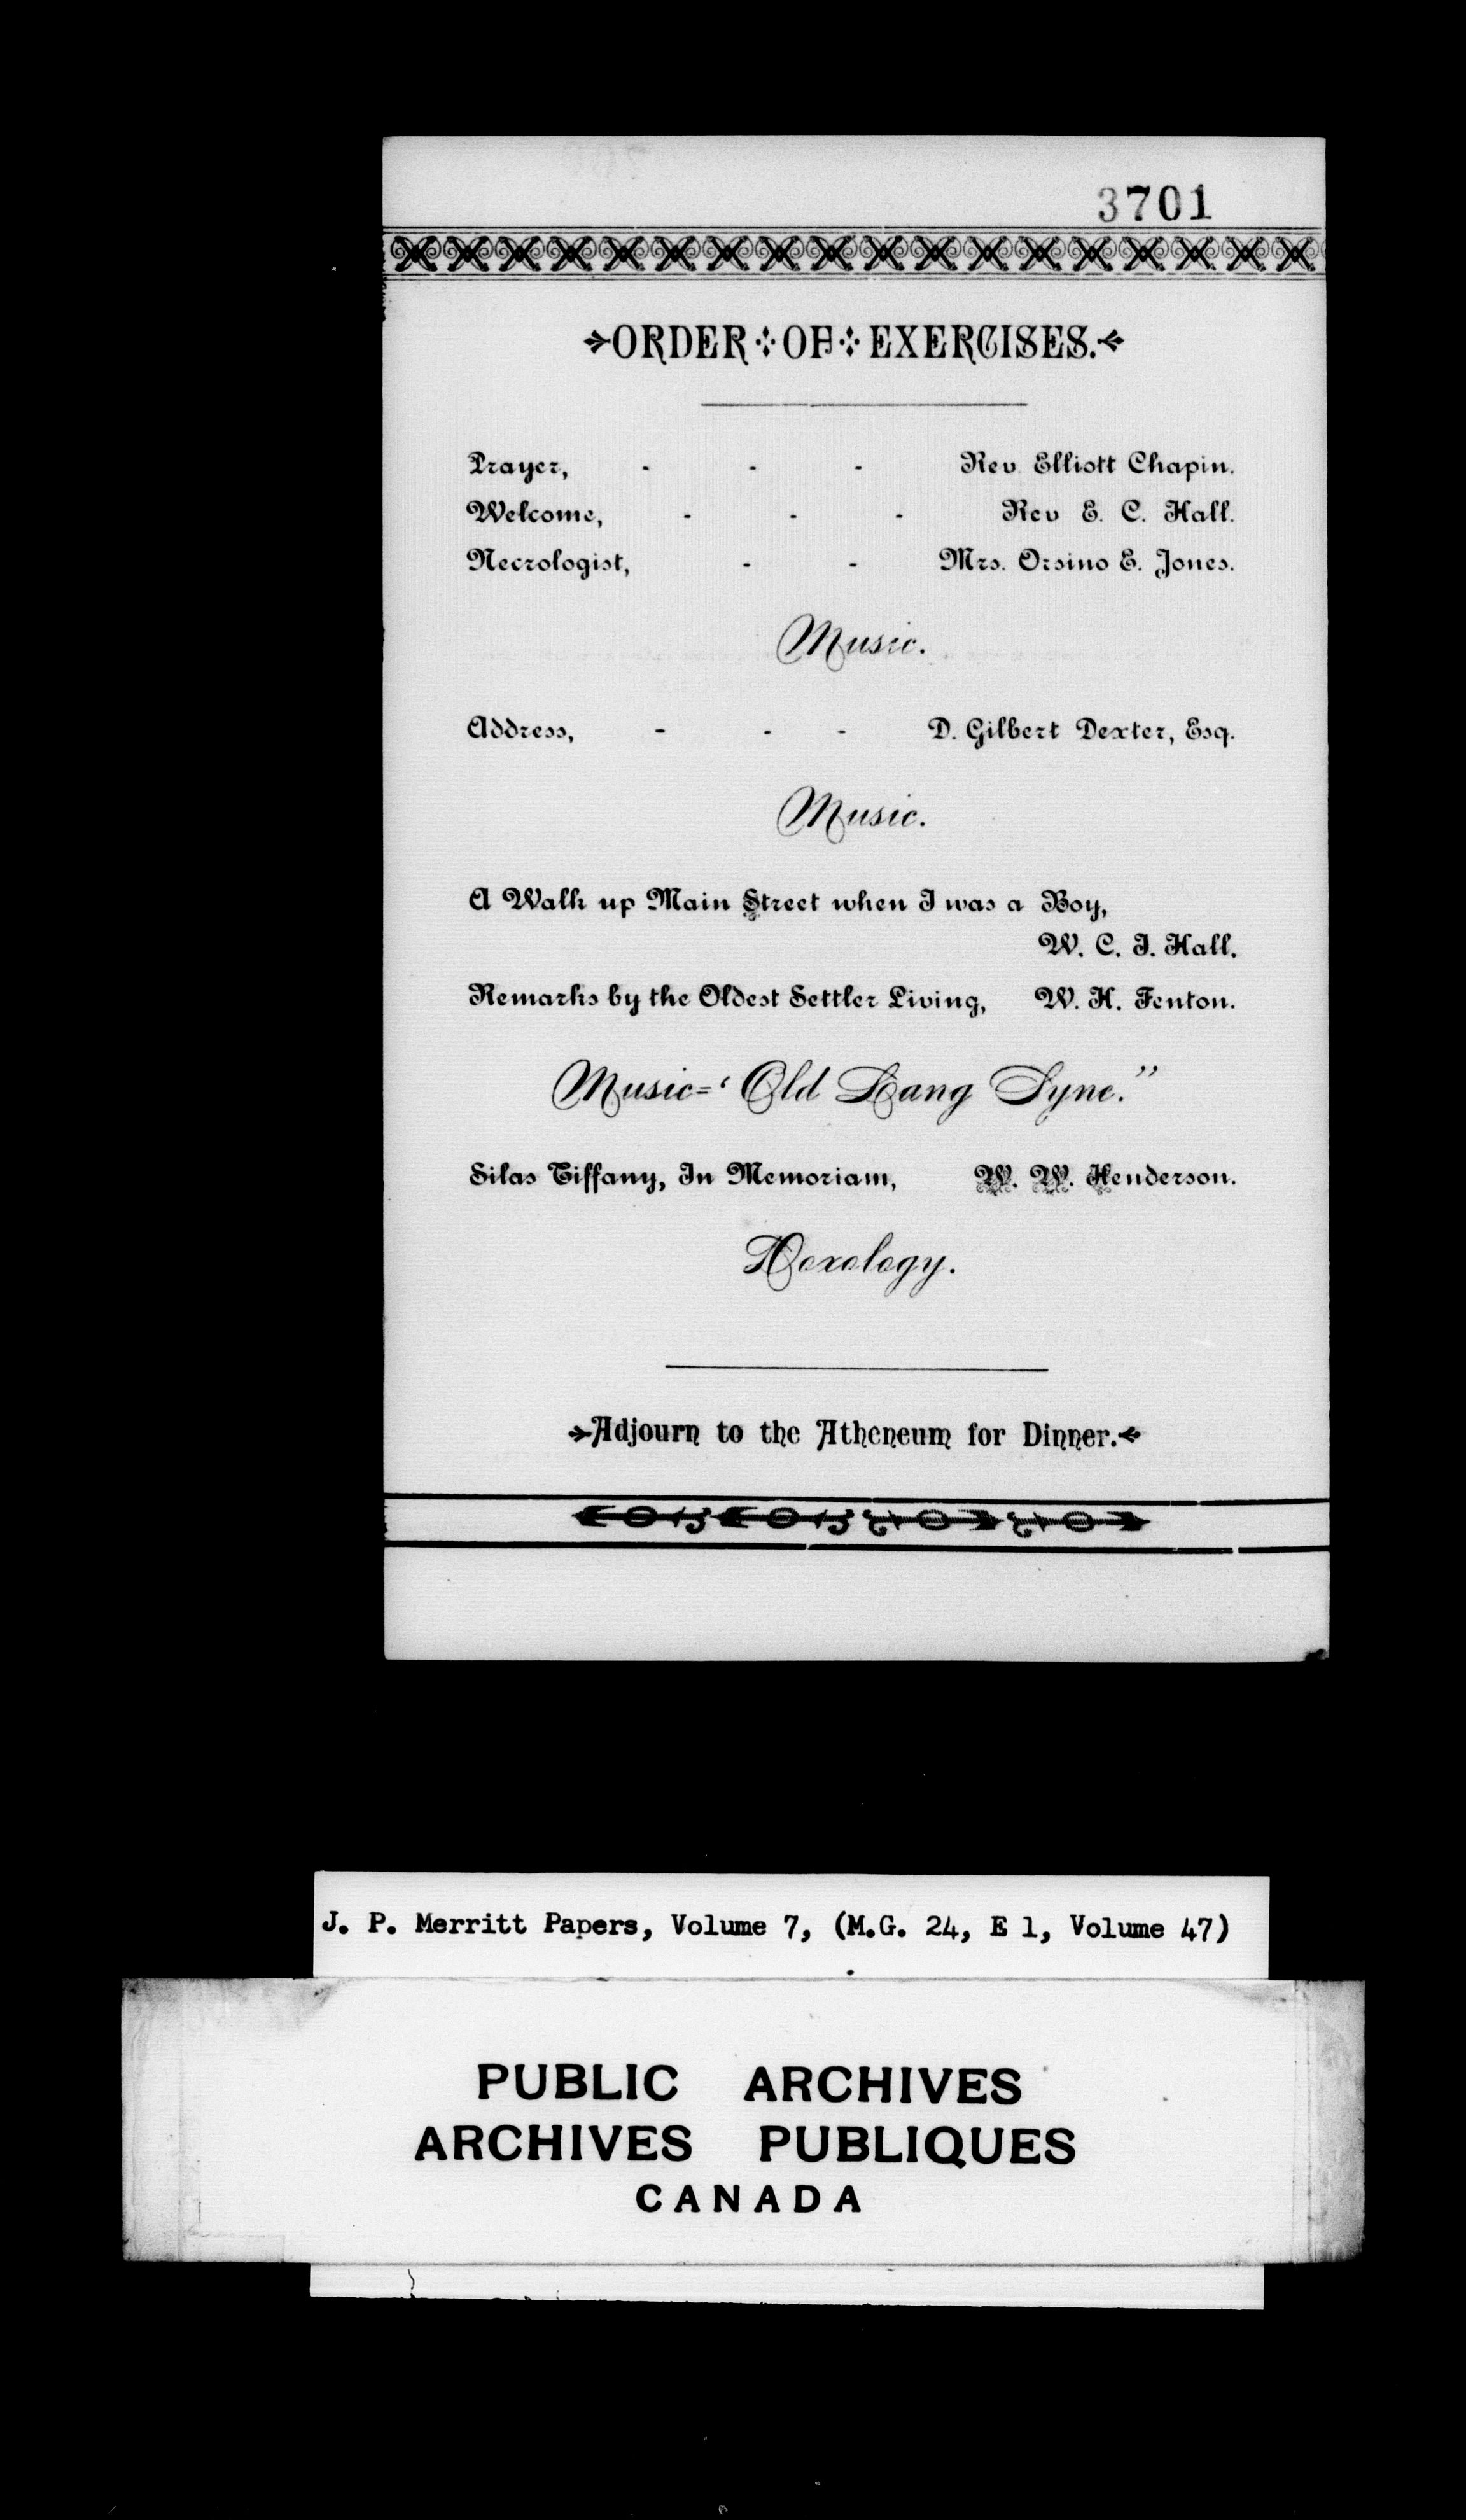 3701
ORDER OF EXERCISES.
Prayer, - - - Rev. Elliott Chapin.
Welcome, - - - Rev E. C. Hall.
Necrologist, - - Mrs. Orsino E. Jones.
Music.
Address, - - - D. Gilbert Dexter, Esq.
Music.
A Walk up Main Street when I was a Boy,
W. C. J. Hall.
Remarks by the Oldest Settler Living, W. H. Fenton.
Music=‘Old Lang Syne.”
Silas Tiffany, In Memoriam, W. W. Henderson.
Doxology.
Adjourn to the Atheneum for Dinner.
J. P. Merritt Papers, Volume 7, (M.G. 24, E 1, Volume 47)
PUBLIC ARCHIVES
ARCHIVES PUBLIQUES
CANADA